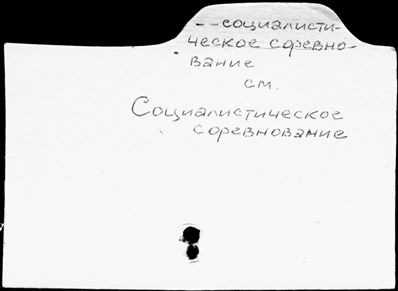 -- социалисти-
ческое соревно-
вание
см.
Социалистическое
соревнование